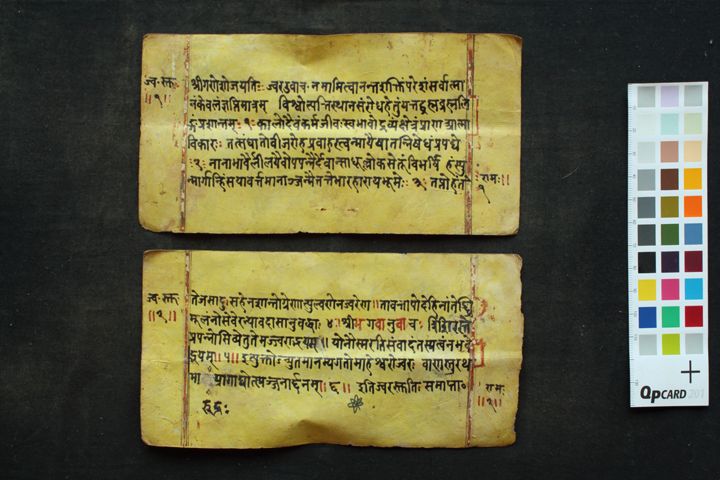 ज्व॰ स्तु॰
॥१॥
श्रीगणेशोजयतिः ज्वरउवाच नमामित्वानन्तशक्तिंपरेशंसर्वात्मा
नंकेवलंज्ञप्तिमात्रम् विश्वोत्पत्तिस्थानसंरोधहेतुंयत्तद्ब्रह्मब्रह्मलि
ङ्गंप्रशान्तम् १ कालोदैवंकर्मजीवःस्वभावोद्रव्यंक्षेत्रंप्राणआत्मा
विकारः तत्संघातोबीजरोहप्रवाहस्त्वन्मायैषातन्निषेधंप्रपद्ये
२ नानाभावैर्लीलयैवोपपन्नैर्देवान्साधूल्लोकसेतून्बिभर्षि हंस्यु
न्मार्गान्हिंसयावर्त्तमानाञ्जन्मैतत्तेभारहारायभूमेः ३ तप्तोहंते
रामः॥
१
ज्व॰ स्तु॰
॥२॥
तेजसादुःसहेनशान्तोग्रेणात्युल्बणेनज्वरेण ॥ तावत्तापोदेहिनांतेङ्घ्रि
मूलंनोसेवेरन्यावदाशानुबद्धाः ४ श्रीभगवानुवाच त्रिशिरस्ते
प्रसन्नोस्मिव्येतुतेमज्ज्वराद्भयम् ॥ योनौस्मरतिसंवादंतस्यत्वंनभवे
द्भयम् ॥५॥ इत्युक्तोच्युतमानम्यगतोमाहेश्वरोज्वरः बाणस्तुरथ
मा प्रागाद्योत्स्यञ्जनार्द्दनम् ॥६॥ इतिज्वरस्तुतिः समाप्ताः
रामः
॥२॥
QPCARD 201